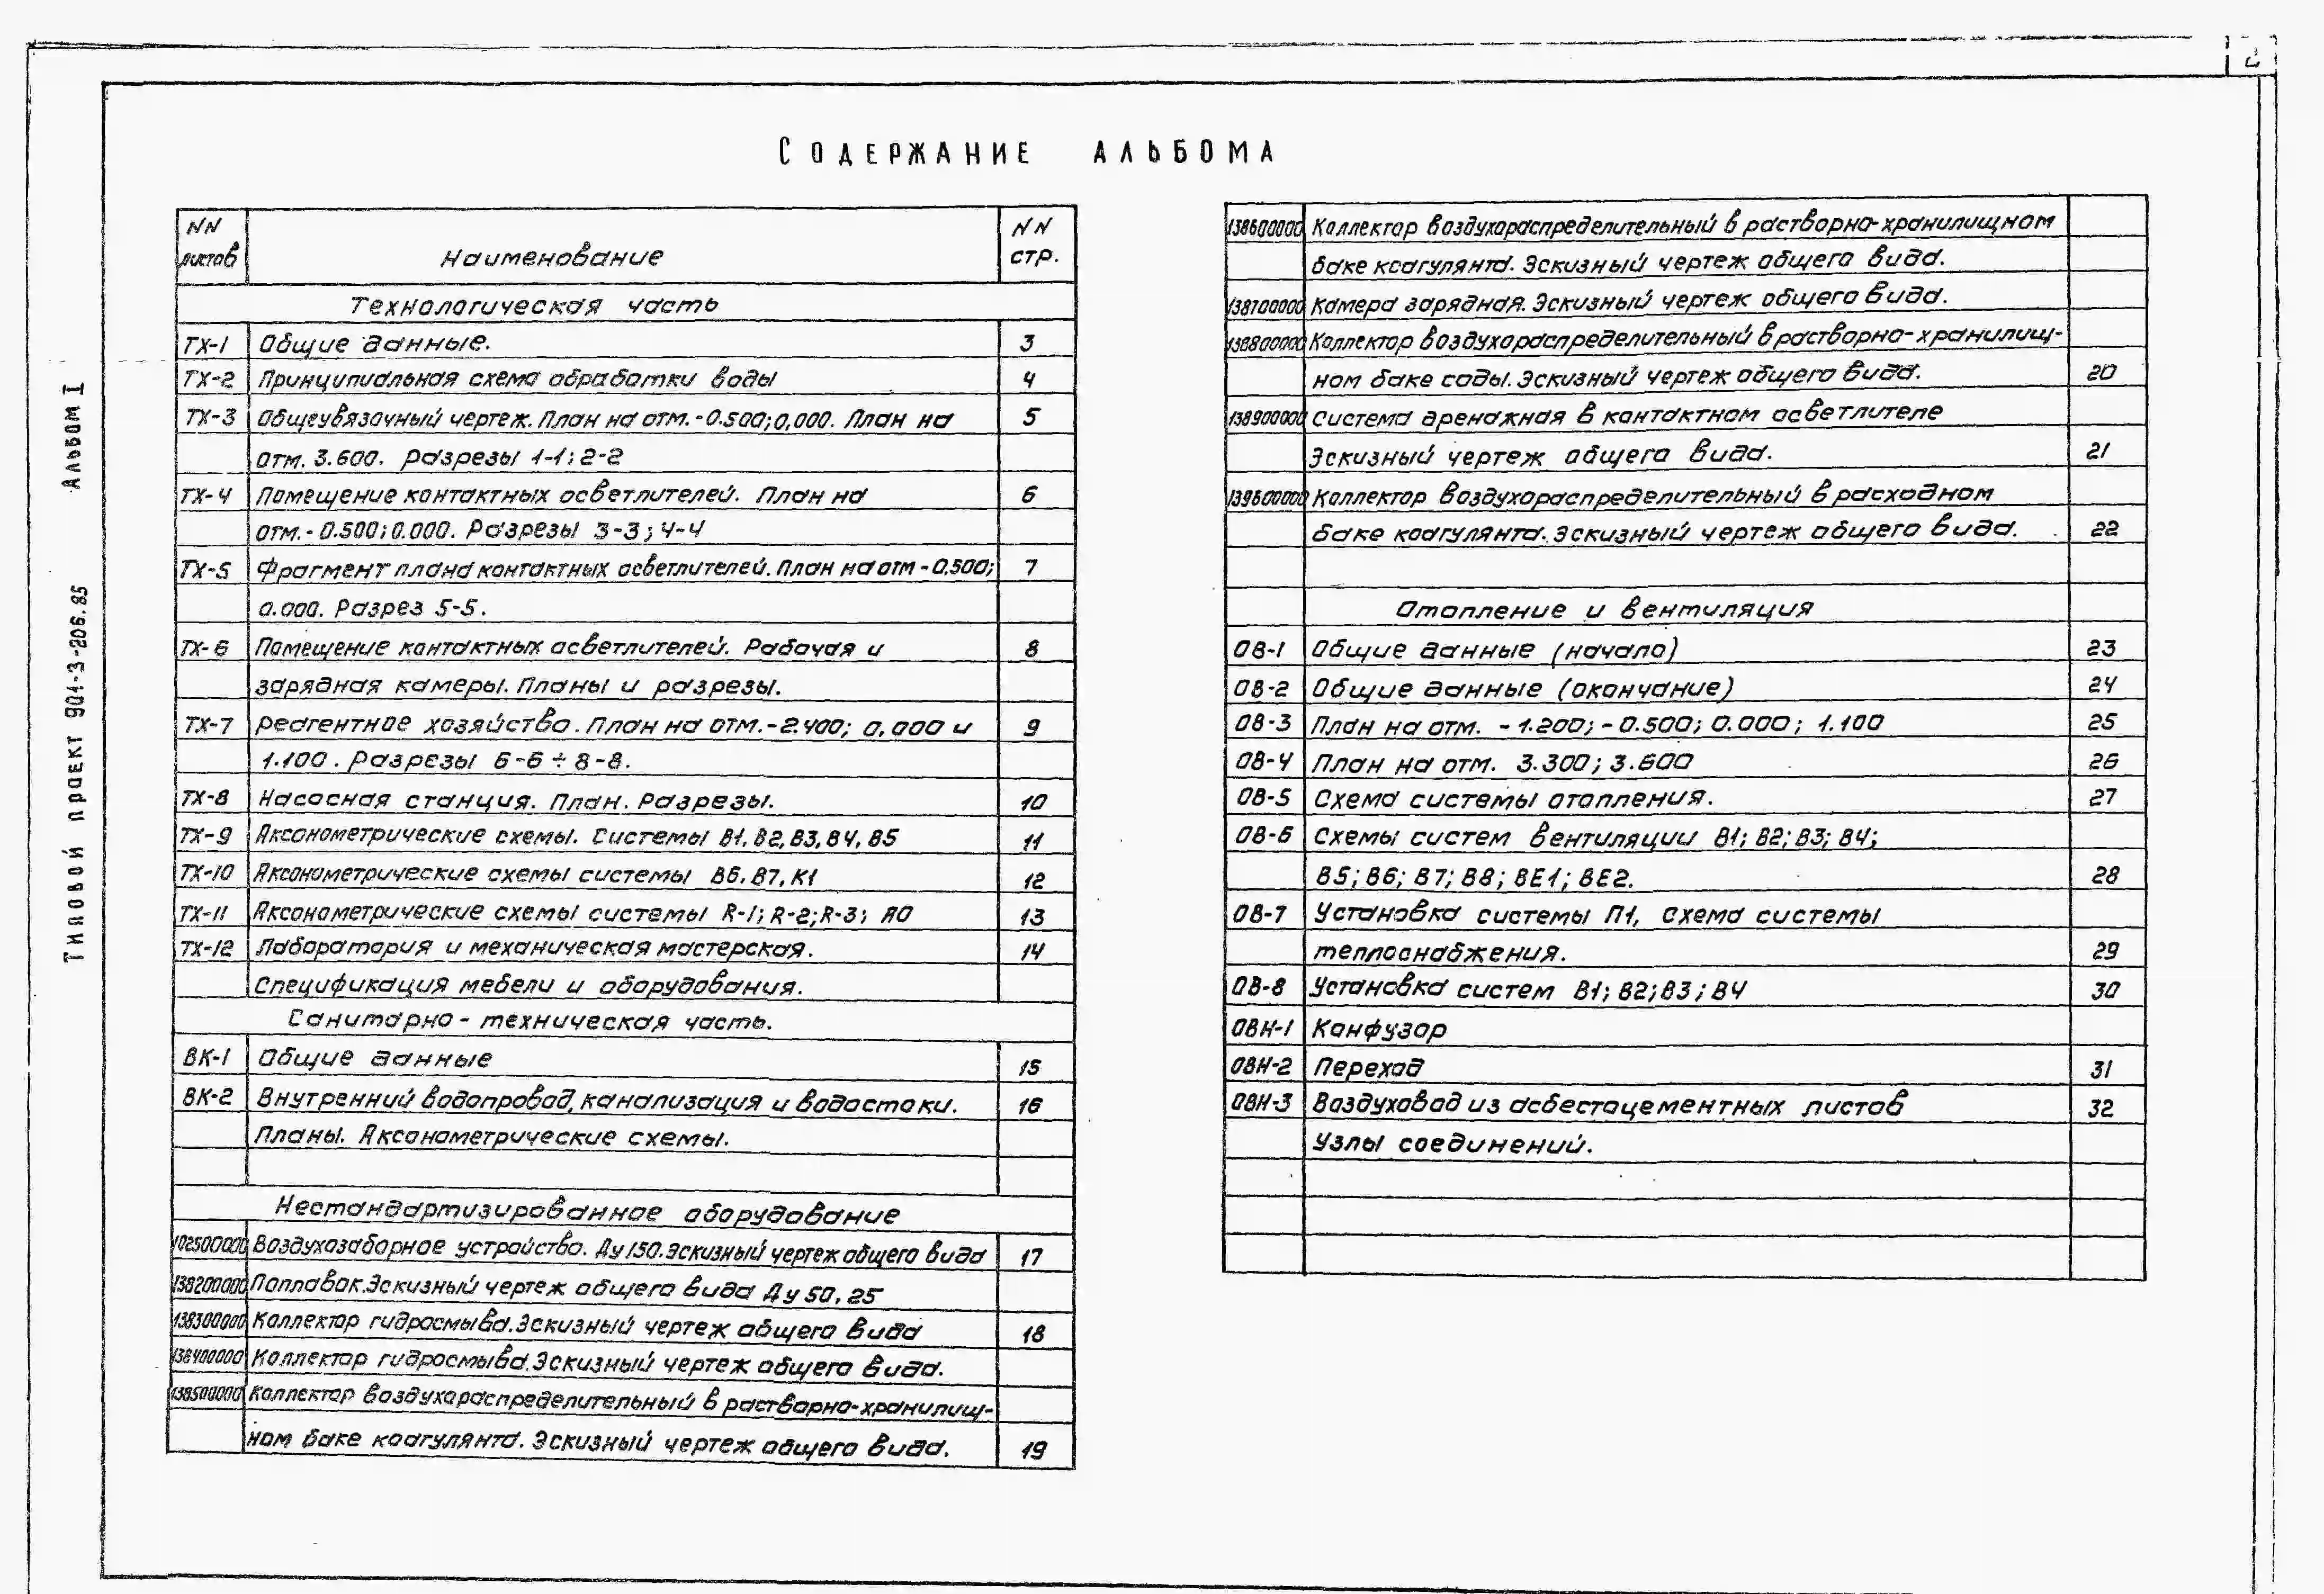 2
СОДЕРЖАНИЕ АЛЬБОМА
Типовой проект 901-3-206.85 Альбом I
NN листов Наименование NN стр.
Технологическая часть
ТХ-1 Общие данные. 3
ТХ-2 Принципиальная схема обработки воды 4
ТХ-3 Общеувязочный чертеж. План на отм. -0.500; 0,000. План на 5
отм. 3.600. Разрезы 1-1; 2-2
ТХ-4 Помещение контактных осветлителей. План на 6
отм. -0.500; 0.000. Разрезы 3-3; 4-4
ТХ-5 Фрагмент плана контактных осветлителей. План на отм -0.500; 7
0.000. Разрез 5-5.
ТХ-6 Помещение контактных осветлителей. Рабочая и 8
зарядная камеры. Планы и разрезы.
ТХ-7 Реагентное хозяйство. План на отм. -2.400; 0,000 и 9
1.100. Разрезы 6-6 ÷ 8-8.
ТХ-8 Насосная станция. План. Разрезы. 10
ТХ-9 Аксонометрические схемы. Системы В1, В2, В3, В4, В5 11
ТХ-10 Аксонометрические схемы системы В6, В7, К1 12
ТХ-11 Аксонометрические схемы системы R-1; R-2; R-3; А0 13
ТХ-12 Лаборатория и механическая мастерская. 14
Спецификация мебели и оборудования.
Санитарно-техническая часть.
ВК-1 Общие данные 15
ВК-2 Внутренний водопровод, канализация и водостоки. 16
Планы. Аксонометрические схемы.
Нестандартизированное оборудование
102500000 Воздухозаборное устройство. Ду 150. Эскизный чертеж общего вида 17
138200000 Поплавок. Эскизный чертеж общего вида Ду 50, 25
138300000 Коллектор гидросмыва. Эскизный чертеж общего вида 18
138400000 Коллектор гидросмыва. Эскизный чертеж общего вида.
138500000 Коллектор воздухораспределительный в растворно-хранилищ-
ном баке коагулянта. Эскизный чертеж общего вида. 19
138600000 Коллектор воздухораспределительный в растворно-хранилищном
баке коагулянта. Эскизный чертеж общего вида.
138700000 Камера зарядная. Эскизный чертеж общего вида.
138800000 Коллектор воздухораспределительный в растворно-хранилищ-
ном баке соды. Эскизный чертеж общего вида. 20
138900000 Система дренажная в контактном осветлителе
Эскизный чертеж общего вида. 21
139600000 Коллектор воздухораспределительный в расходном
баке коагулянта. Эскизный чертеж общего вида. 22
Отопление и вентиляция
ОВ-1 Общие данные (начало) 23
ОВ-2 Общие данные (окончание) 24
ОВ-3 План на отм. -1.200; -0.500; 0.000; 1.100 25
ОВ-4 План на отм. 3.300; 3.600 26
ОВ-5 Схема системы отопления. 27
ОВ-6 Схемы систем вентиляции В1; В2; В3; В4;
В5; В6; В7; В8; ВЕ1; ВЕ2. 28
ОВ-7 Установка системы П1, схема системы
теплоснабжения. 29
ОВ-8 Установка систем В1; В2; В3; В4 30
ОВН-1 Конфузор
ОВН-2 Переход 31
ОВН-3 Воздуховод из асбестоцементных листов 32
Узлы соединений.